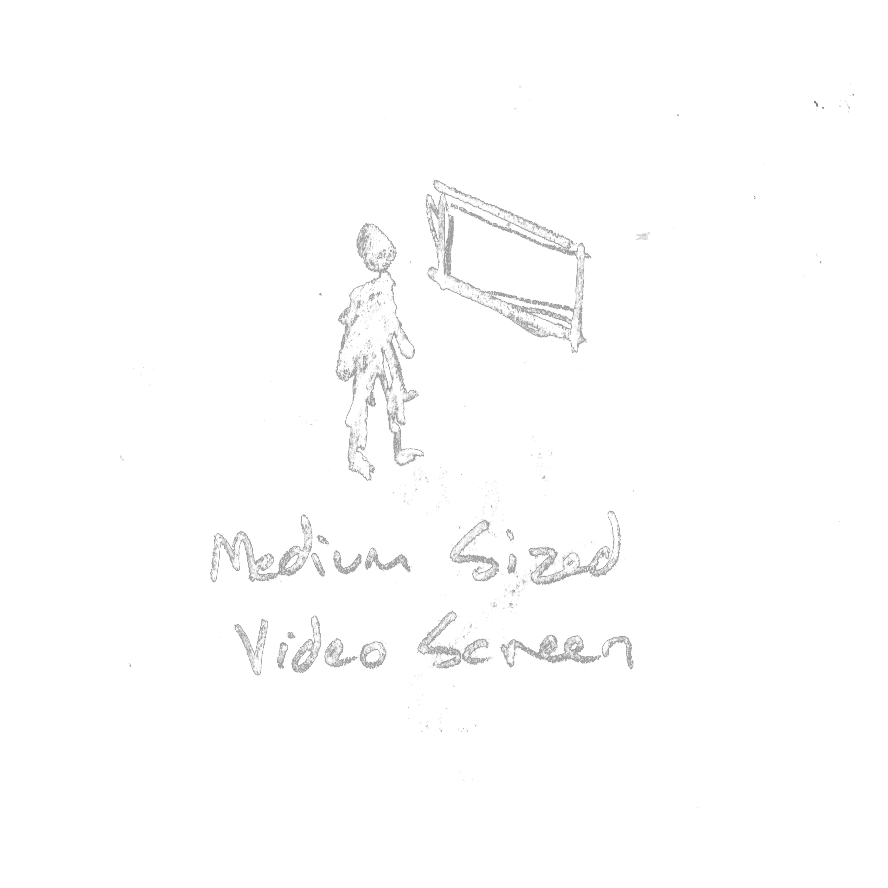 Medium Sized
Video Screen